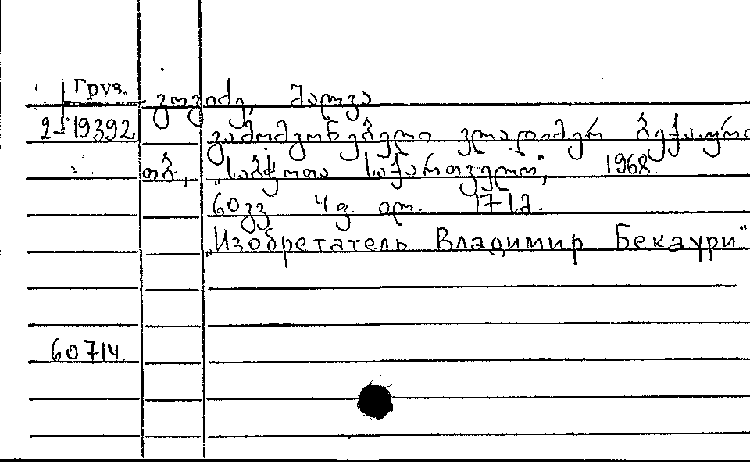 Груз. გოგიძე, შალვა
2-19392 გამომგონებელი ვლადიმერ ბექაური
თბ., „საბჭოთა საქართველო", 1968
60გვ 4 ფ. ილ. 17 სმ.
„Изобретатель Владимир Бекаури"
60714